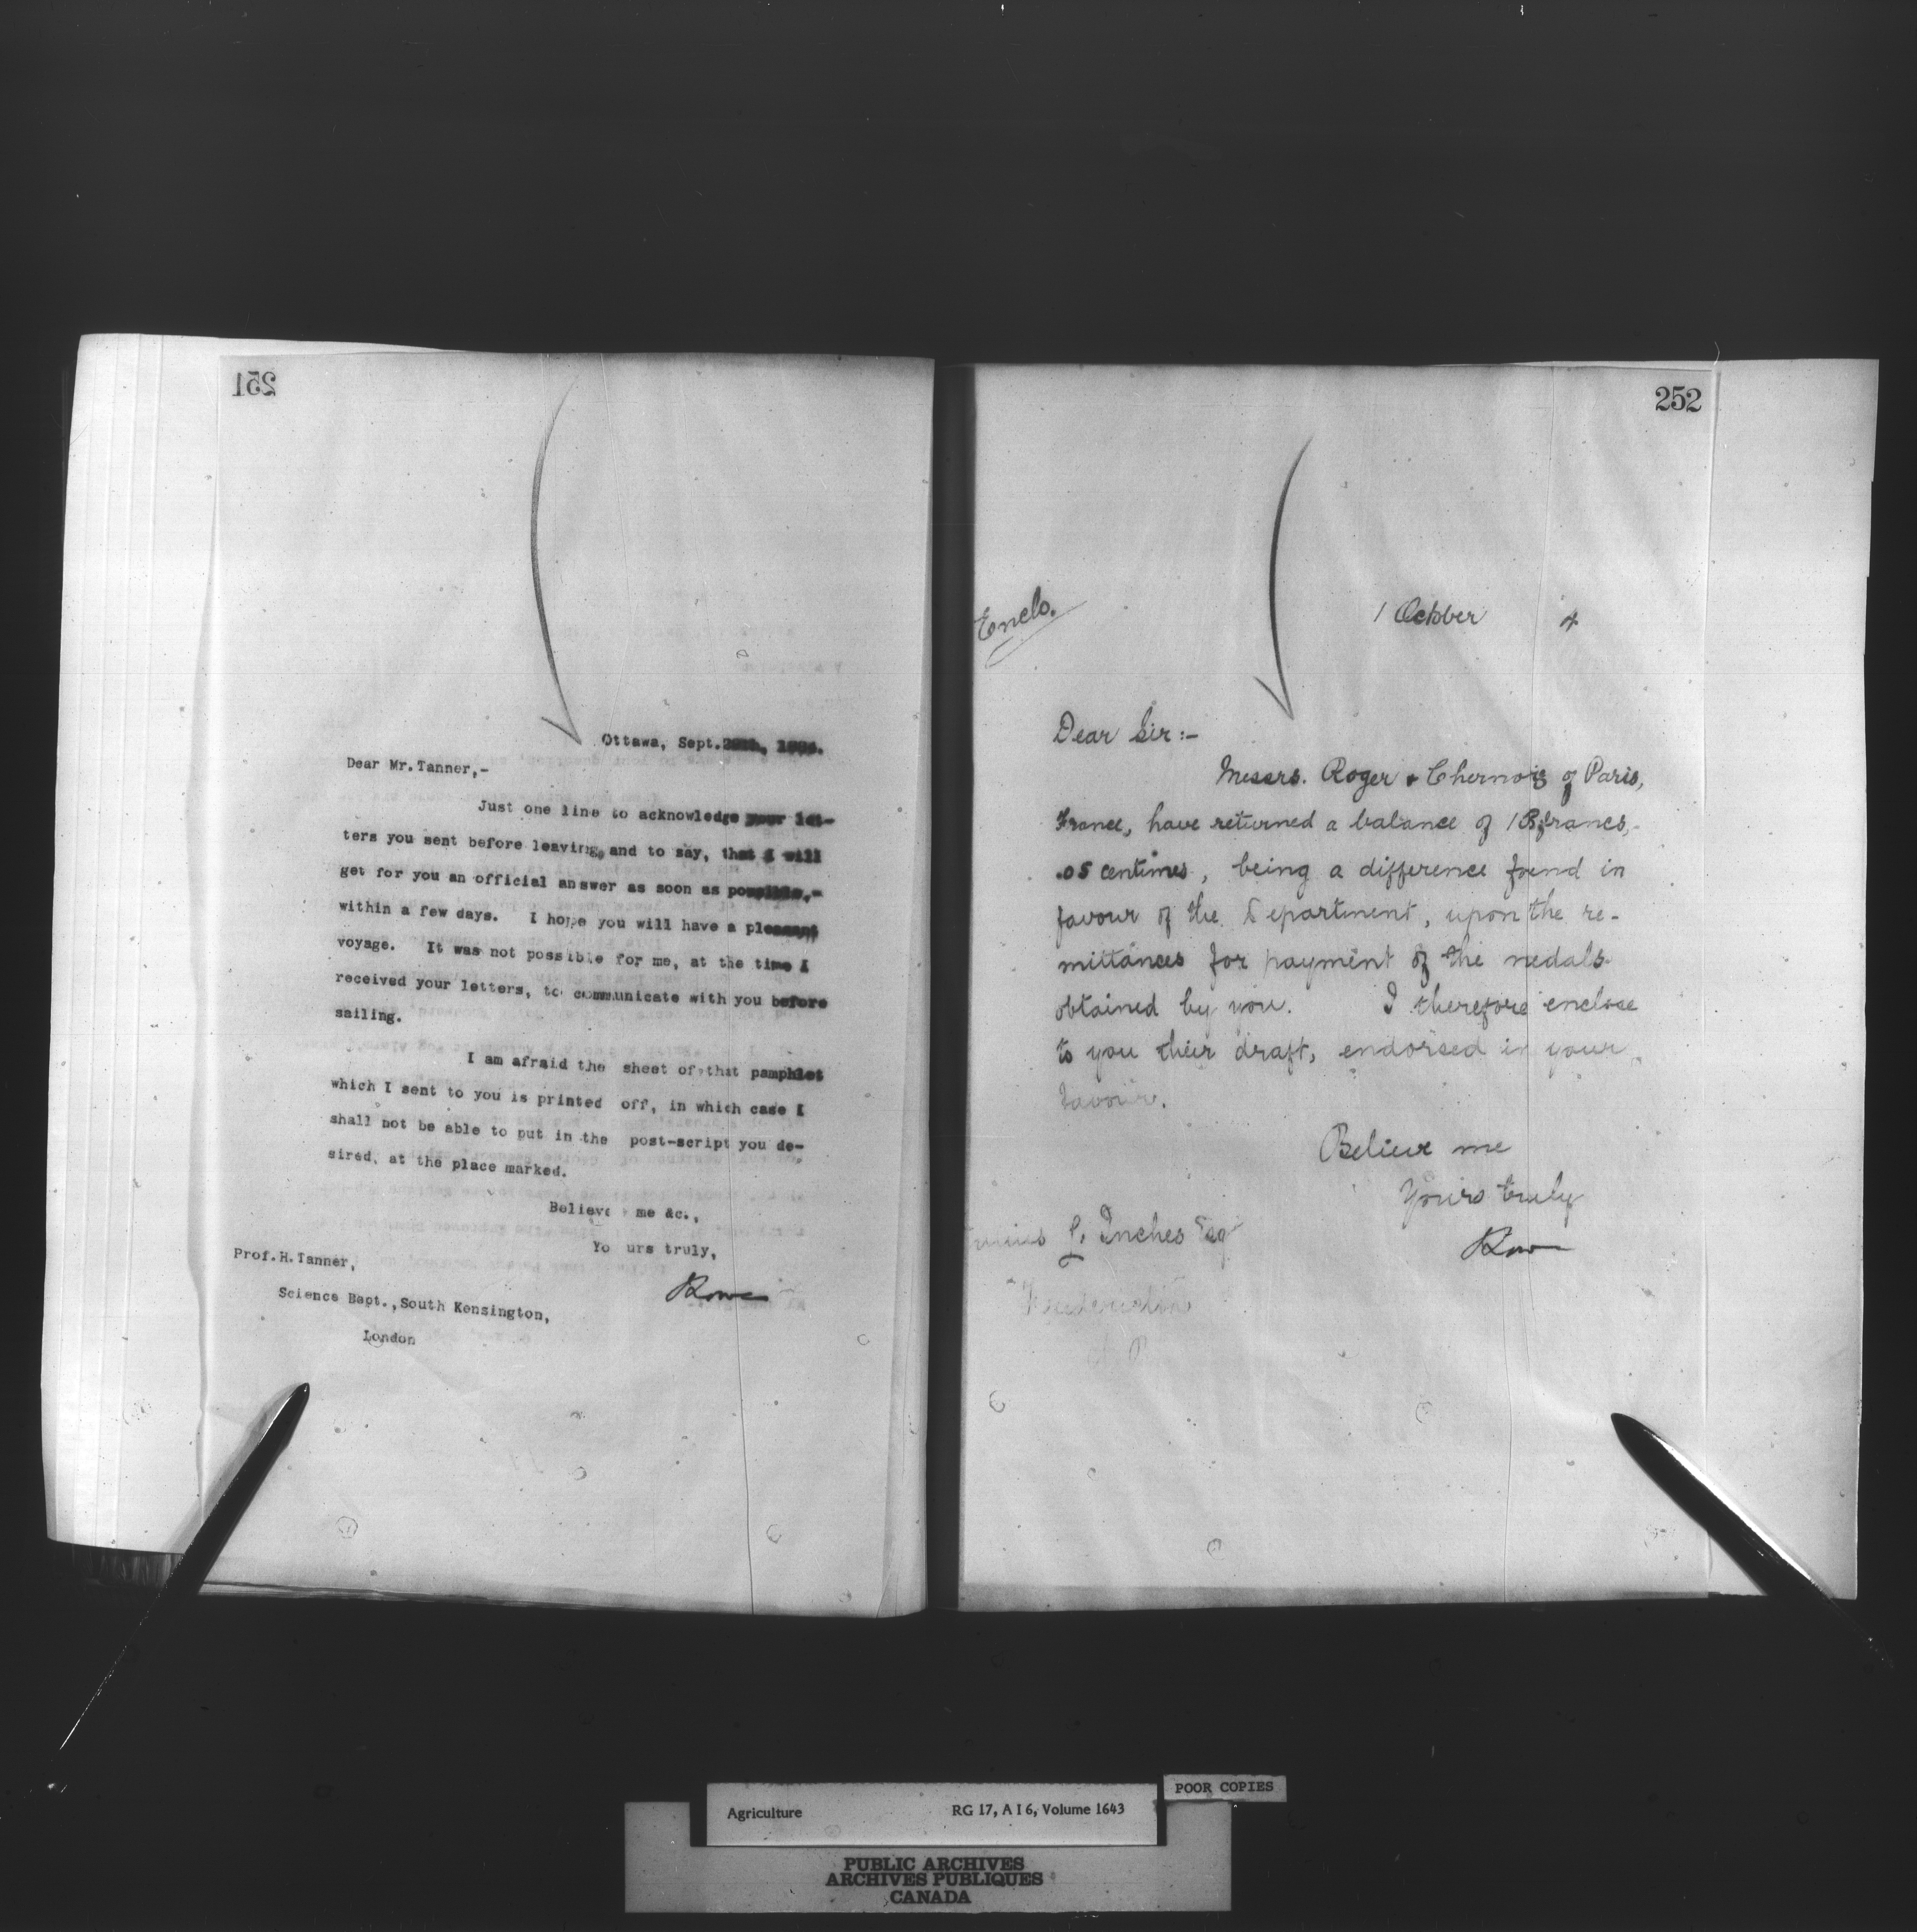 251
Ottawa, Sept.
Dear Mr. Tanner,-
Just one line to acknowledge your let-
ters you sent before leaving, and to say, that I will
get for you an official answer as soon as possible,-
within a few days. I hope you will have a pleasant
voyage. It was not possible for me, at the time I
received your letters, to communicate with you before
sailing.
I am afraid the sheet of that pamphlet
which I sent to you is printed off, in which case I
shall not be able to put in the post-script you de-
sired, at the place marked.
Believe me &c.,
Yours truly,
Prof. H. Tanner,
Science Bept., South Kensington,
London
252
Enclo.
1 October 4
Dear Sir:-
Messrs. Roger & Chernoviz of Paris,
France, have returned a balance of francs,
.05 centimes, being a difference found in
favour of the Department, upon the re-
mittances for payment of the medals
obtained by you. I therefore enclose
to you their draft, endorsed in your
favour.
Believe me
Yours truly
Inches Esq
Fredericton
Agriculture RG 17, A I 6, Volume 1643
POOR COPIES
PUBLIC ARCHIVES
ARCHIVES PUBLIQUES
CANADA